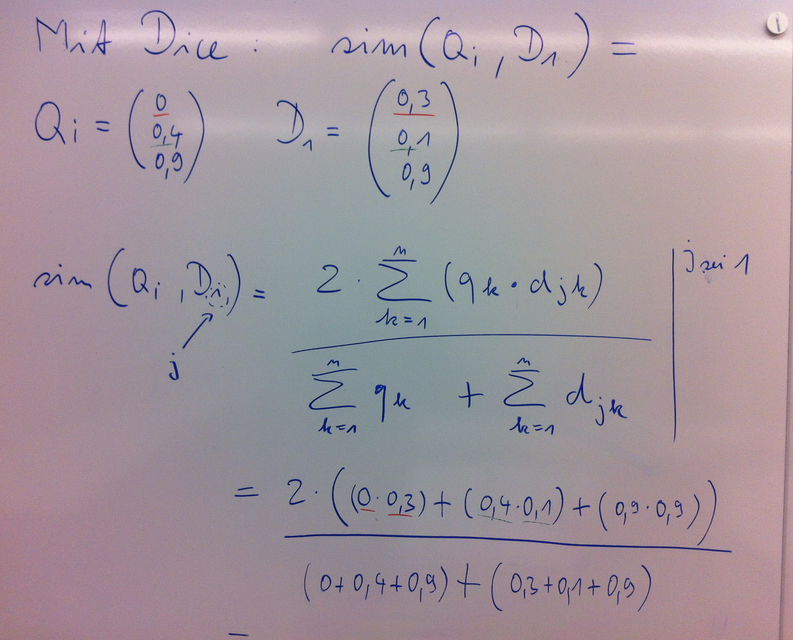 Mit Dice : sim(Qi , D1) =
Qi = (0 0,4 0,9) D1 = (0,3 0,1 0,9)
sim(Qi , Di) = 2 · Σ k=1 n (qk · djk) / Σ k=1 n qk + Σ k=1 n djk | j sei 1
j
= 2 · ((0 · 0,3) + (0,4 · 0,1) + (0,9 · 0,9)) / (0+0,4+0,9) + (0,3+0,1+0,9)
=